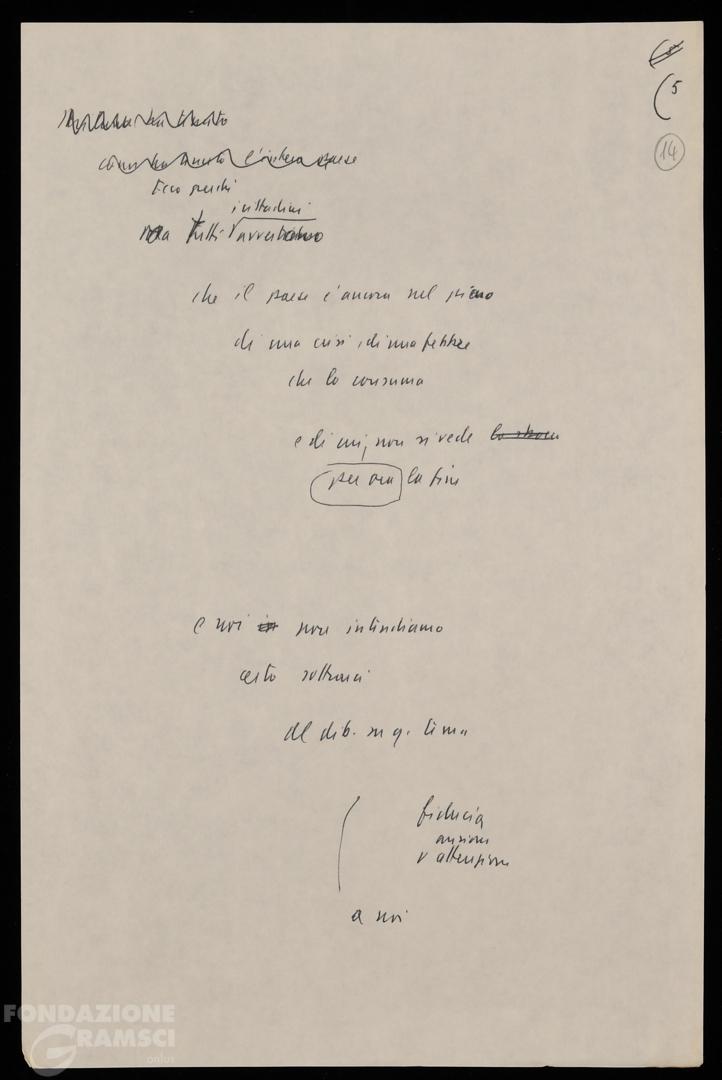 (5
14
l'intera paese
Ecco perché
i cittadini
ma tutti avvertono
che il paese è ancora nel pieno
di una crisi, di una febbre
che lo consuma
e di cui, non si vede
per ora la fine
e noi non intendiamo
certo sottrarci
al dib. su q. tema
fiducia
ansiosa
attenzione
a noi
FONDAZIONE
GRAMSCI
onlus